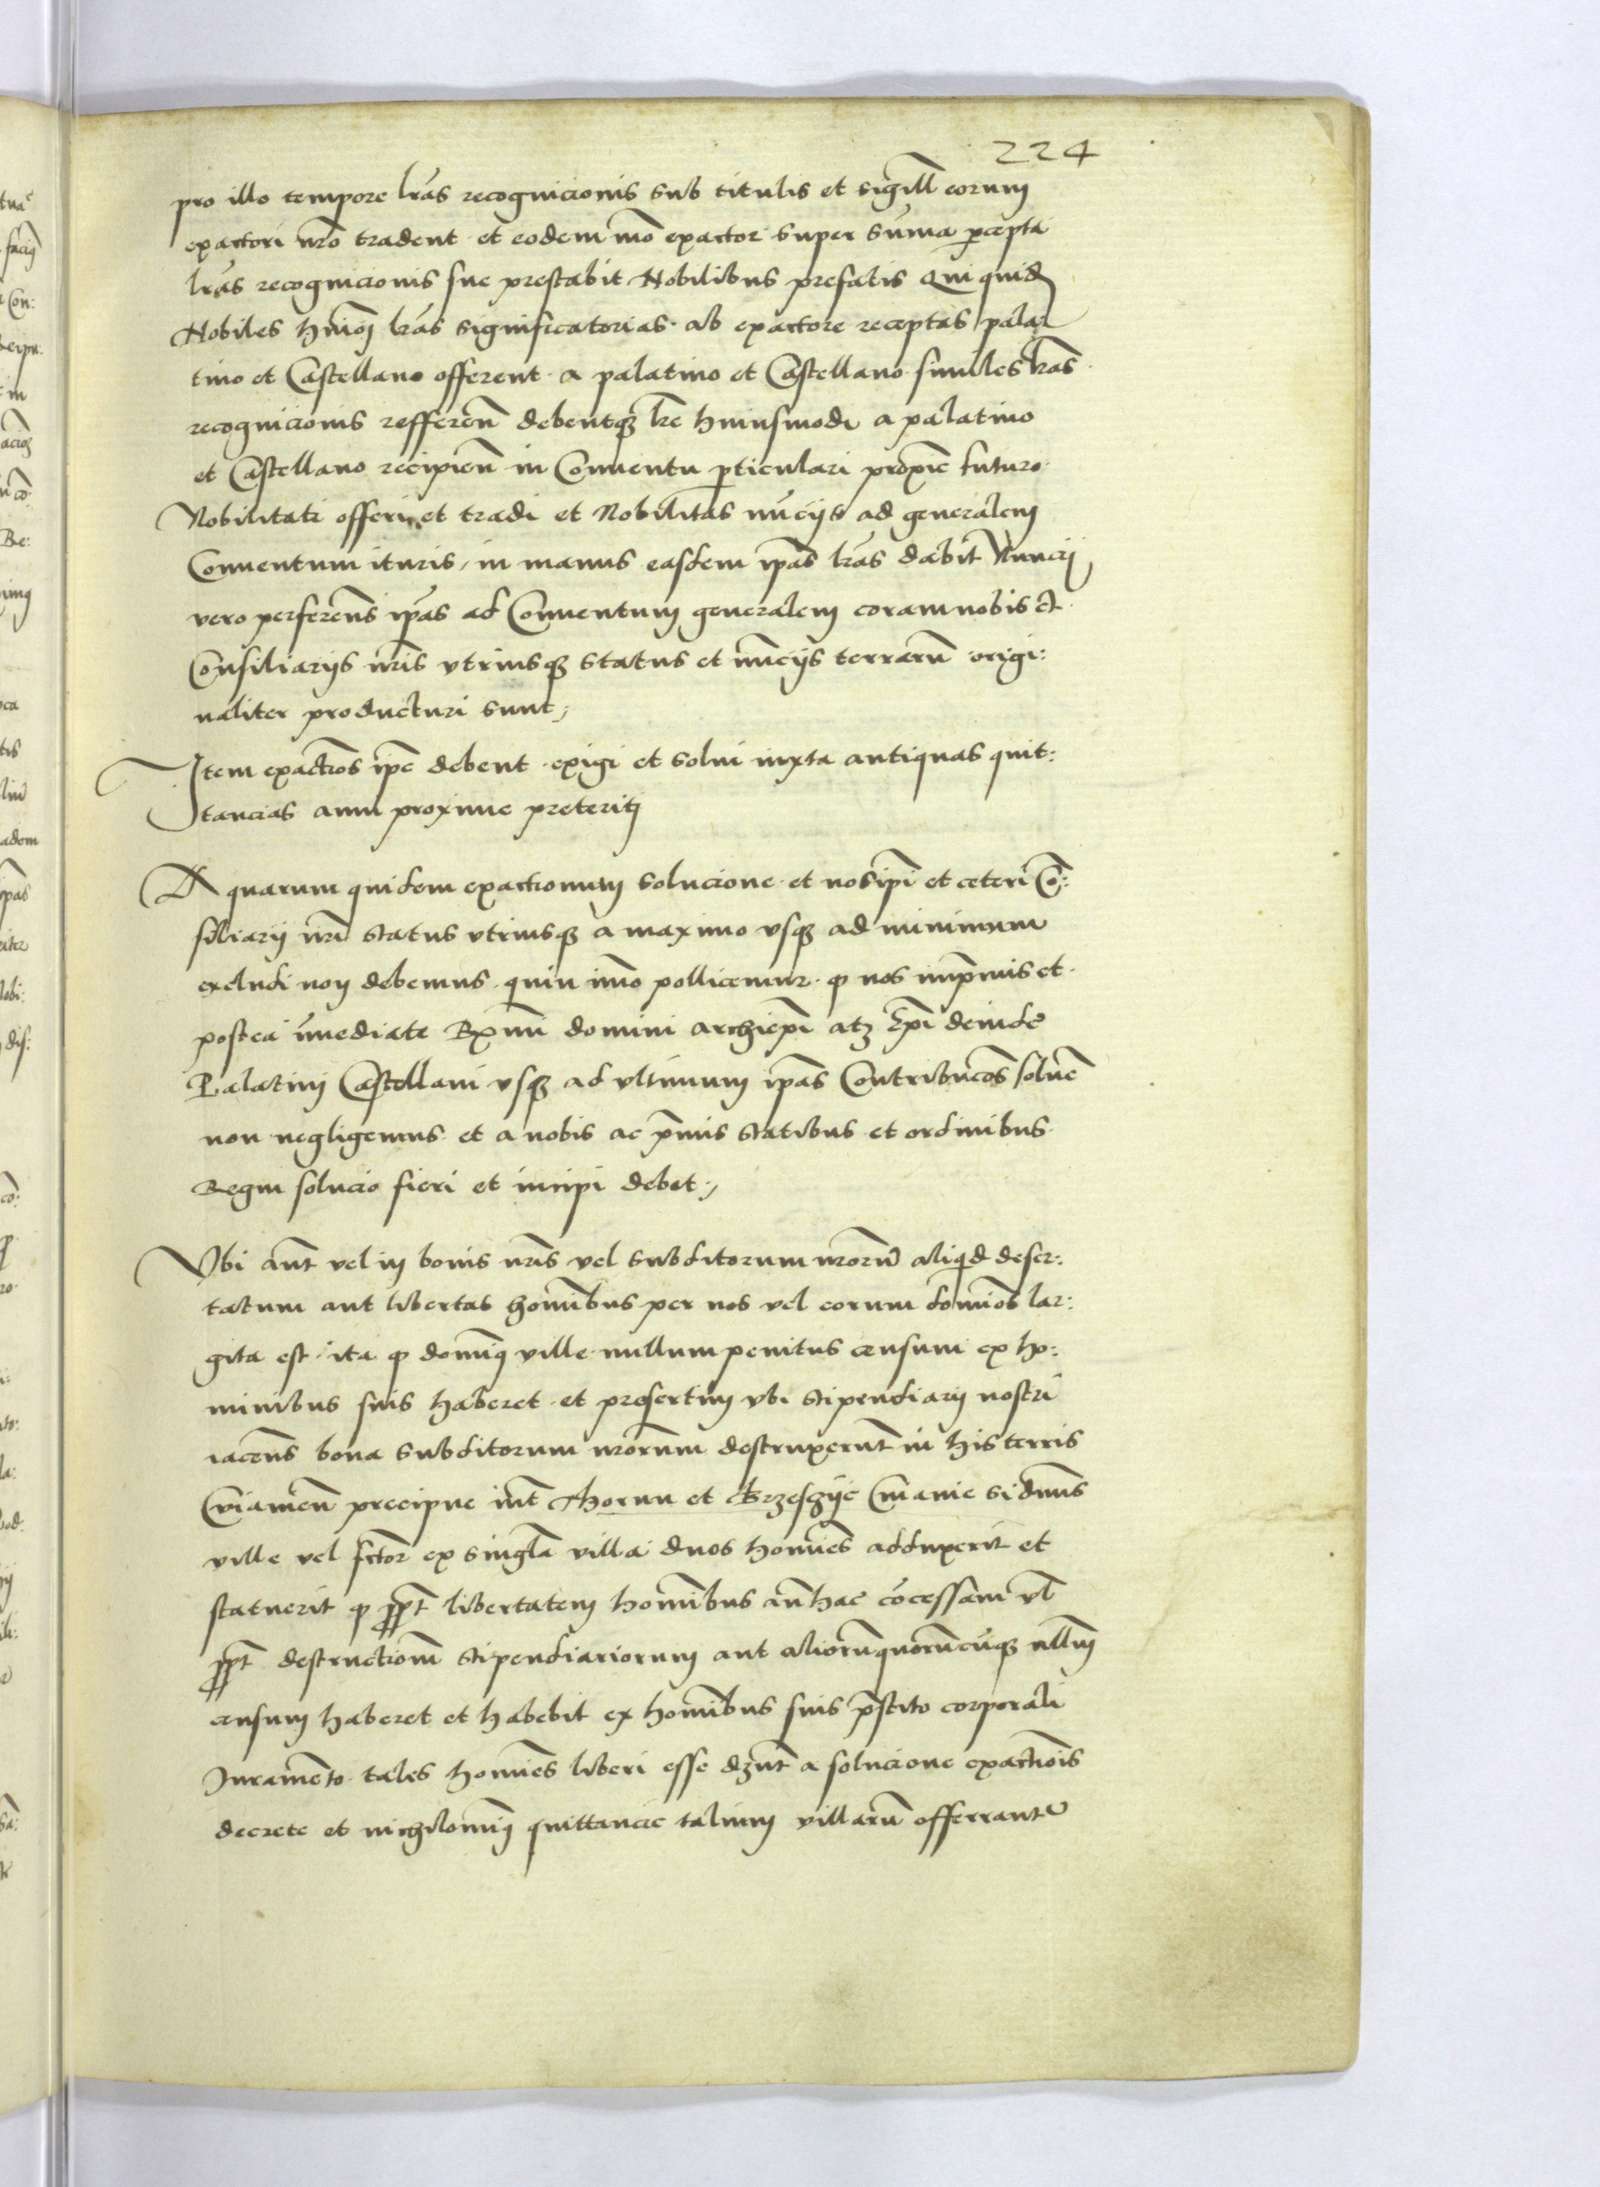 224
pro illo tempore lr̄as recognicionis sub titulis et sigill̄ eorum
exactori nr̄o tradent et eodem mō exactor super sūma ꝑcepta
lr̄as recognicionis sue prestabit Nobilibus prefatis Qui quidē
Nobiles hmōi lr̄as significatorias ab exactore receptas pala
tino et Castellano offerent a palatino et Castellano similes lr̄as
recognicionis refferēn debentqꝫ lr̄e huiusmodi a palatino
et Castellano recipiēn in Conuentu ꝑticulari proxīe futuro
Nobilitati offerri et tradi et Nobilitas nūcijs ad generalem
Conuentum ituris, in manus easdem ip̄as lr̄as dabit Nuncij
vero perferens̄ ip̄as ad Conuentum generalem coram nobis et
Consiliarijs nr̄is vtriusqꝫ status et nūcijs terrarū origi:
naliter producturi sunt,
Item exactiōes ip̄e debent exigi et solui iuxta antiquas quit:
tancias anni proxime preteriti
A quarum quidem exactionum solucione et nos ip̄i et ceteri Cō:
siliarij nr̄i status vtriusqꝫ a maximo vsqꝫ ad minimum
excludi non debemus quin īmo pollicemur ꝙ nos imp̄mis et
postea īmediate Rx̄mi domini archiep̄i atqꝫ Ep̄i deinde
Palatini Castellani vsqꝫ ad vltimum ip̄as Contribuciōes soluēn
non negligemus et a nobis ac p̄mis statibus et ordinibus
Regni solucio fieri et incipi debet,
Vbi aut̄ vel in bonis nr̄is vel subditorum nr̄orū aliqid deser:
tatum aut libertas hominībus per nos vel eorum domīos lar:
gita est ita ꝙ domin9 ville nullum penitus censum ex ho:
minibus suis haberet et presertim vbi stipendiarij nostri
iacens̄ bona subditorum nr̄orum destruxerunt̄ in his terris
precipue int̄ Thorun et Brzesczije si dn̄us
ville vel fctōr ex singl̄a villa duos homīes adduxerit et
statuerit ꝙ ꝓpt̄ libertatem homībus an̄hac cōcessam vl̄
ꝓpt̄ destructionē stipendiariorum aut aliorūquorūcūqꝫ nll̄m
censum haberet et habebit ex homībus suis p̄stito corporali
Iuramēto tales homīes liberi esse dꝫnt̄ a solucione exactiōis
decrete et nichilomin9 quittancie talium villarū offerrantur